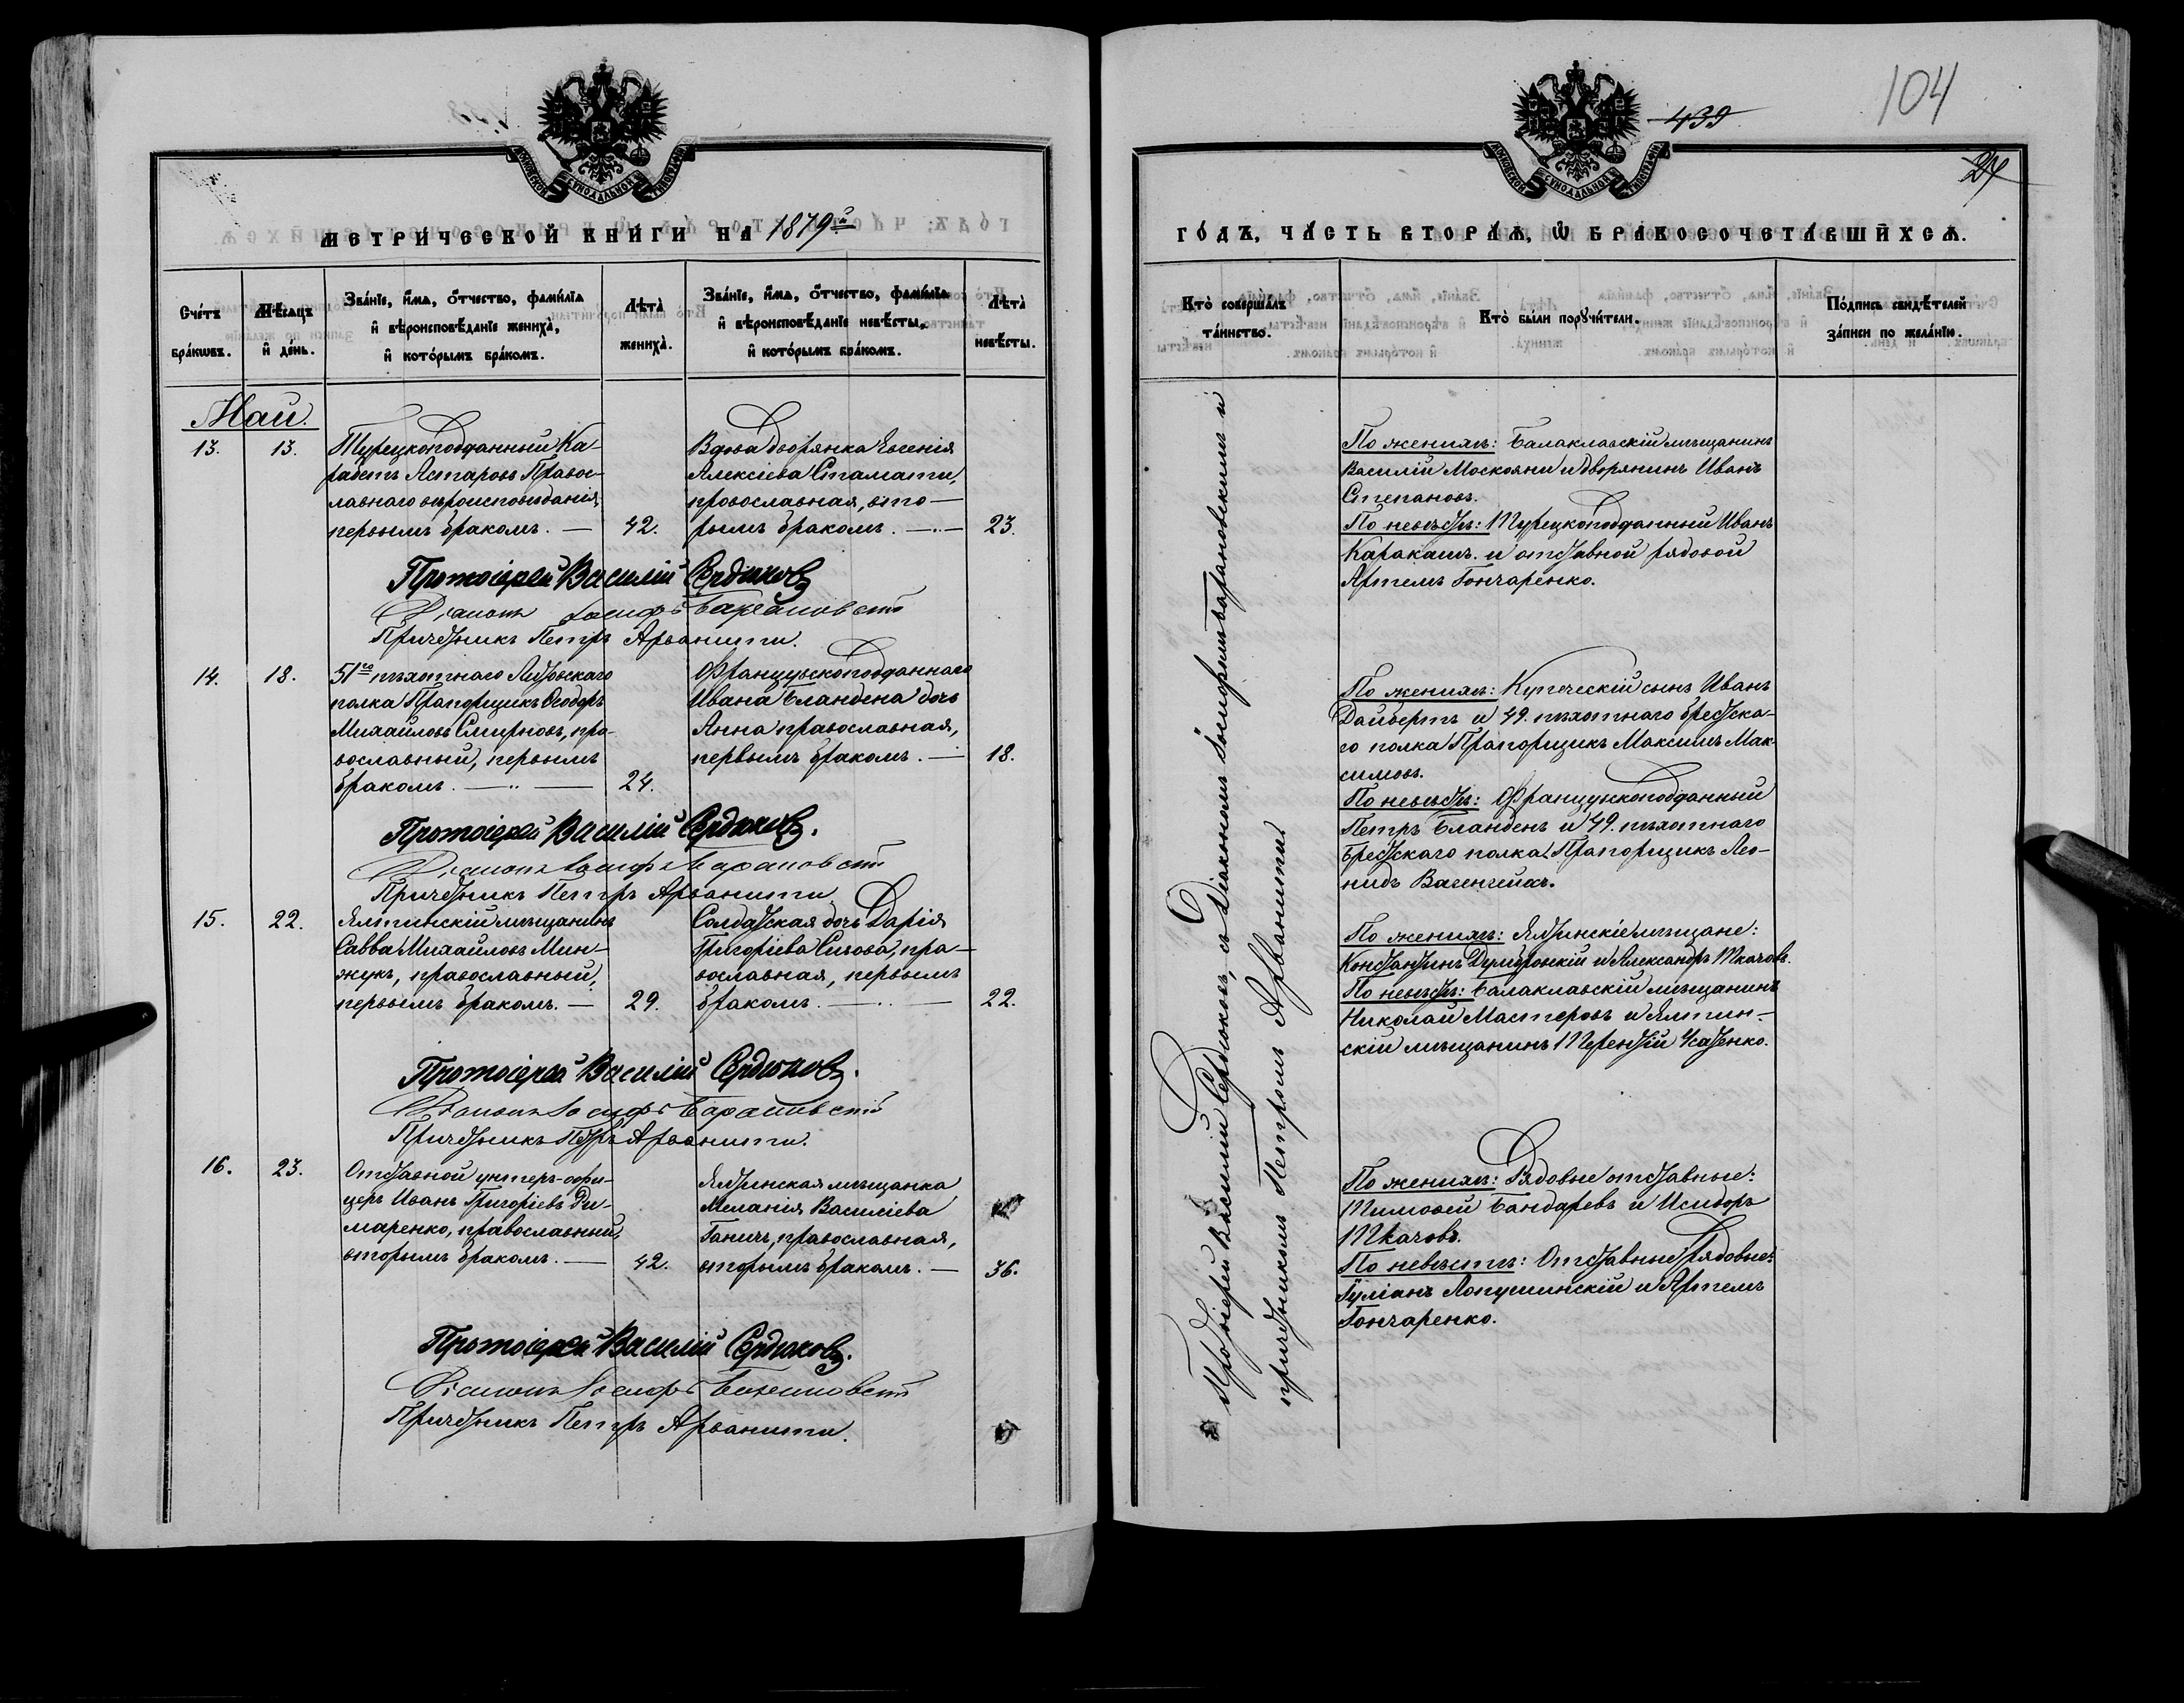 МОСКОВСКОЙ СУНОДАЛЬНОЙ ТИПОГРАФІИ
МЕТРИЧЕСКОЙ КНИГИ НА 1879й
Счетъ браковъ.
Мѣсяцъ и день.
Званіе, имя, отчество, фамилія и вѣроисповѣданіе жениха, и которымъ бракомъ.
Лѣта жениха.
Званіе, имя, отчество, фамилія и вѣроисповѣданіе невѣсты, и которымъ бракомъ.
Лѣта невѣсты.
Май.
13. 13.
Турецкоподданный Ка-
рабетъ Астаровъ Правос-
лавнаго вѣроисповѣданія,
первымъ бракомъ. — 42.
Вдова дворянка Евгенія
Алексіева Стамати,
православная, вто-
рымъ бракомъ. — 23.
Протоіерей Василій Сердюковъ
Діаконъ Іосифъ Барановскій
Причетникъ Петръ Арванити.
14. 18.
51го пѣхотнаго Литовскаго
полка Прапорщикъ Ѳеодоръ
Михайловъ Смирновъ, пра-
вославный, первымъ
бракомъ. — 24.
Французскоподданнаго
Ивана Бландена дочь
Анна православная,
первымъ бракомъ. — 18.
Протоіерей Василій Сердюковъ.
Діаконъ Іосифъ Барановскій
Причетникъ Петръ Арванити.
15. 22.
Ялтинскій мѣщанинъ
Савва Михайловъ Мин-
жукъ, православный,
первымъ бракомъ. — 29.
Солдатская дочь Дарія
Григоріева Сизова, пра-
вославная, первымъ
бракомъ. — 22.
Протоіерей Василій Сердюковъ.
Діаконъ Іосифъ Барановскій
Причетникъ Петръ Арванити.
16. 23.
Отставной унтеръ-офи-
церъ Иванъ Григоріевъ Ди-
маренко, православный,
вторымъ бракомъ. — 42.
Ялтинская мѣщанка
Меланія Василіева
Ганичъ, православная,
вторымъ бракомъ. — 36.
Протоіерей Василій Сердюковъ.
Діаконъ Іосифъ Барановскій
Причетникъ Петръ Арванити.
104
439
24
МОСКОВСКОЙ СУНОДАЛЬНОЙ ТИПОГРАФІИ
ГОДЪ, ЧАСТЬ ВТОРАЯ, Ѡ БРАКОСОЧЕТАВШИХСЯ.
Кто совершалъ таинство.
Кто были поручители.
Подпись свидѣтелей записи по желанію.
Протоіерей Василій Сердюковъ, съ Діакономъ Іосифомъ Барановскимъ и
причетникомъ Петромъ Арванити.
По женихѣ: Балаклавскій мѣщанинъ
Василій Москояни и дворянинъ Иванъ
Степановъ.
По невѣстѣ: Турецкоподданный Иванъ
Каракашъ и отставной рядовой
Артемъ Гончаренко.
По женихѣ: Купеческій сынъ Иванъ
Дайбертъ и 49. пѣхотнаго Брестска-
го полка Прапорщикъ Максимъ Мак-
симовъ.
По невѣстѣ: Французскоподданный
Петръ Бланденъ и 49. пѣхотнаго
Брестскаго полка Прапорщикъ Лео-
нидъ
По женихѣ: Ялтинскіе мѣщане:
Константинъ Думбровскій и Александръ Ткачовъ.
По невѣстѣ: Балаклавскій мѣщанинъ
Николай Мастеровъ и Ялтин-
скій мѣщанинъ Терентій Усатенко.
По женихѣ: Рядовые отставные:
Тимофей Бандаревъ и Исидоръ
Ткачовъ.
По невѣстѣ: Отставные рядовые:
Іуліанъ Лопушинскій и Артемъ
Гончаренко.